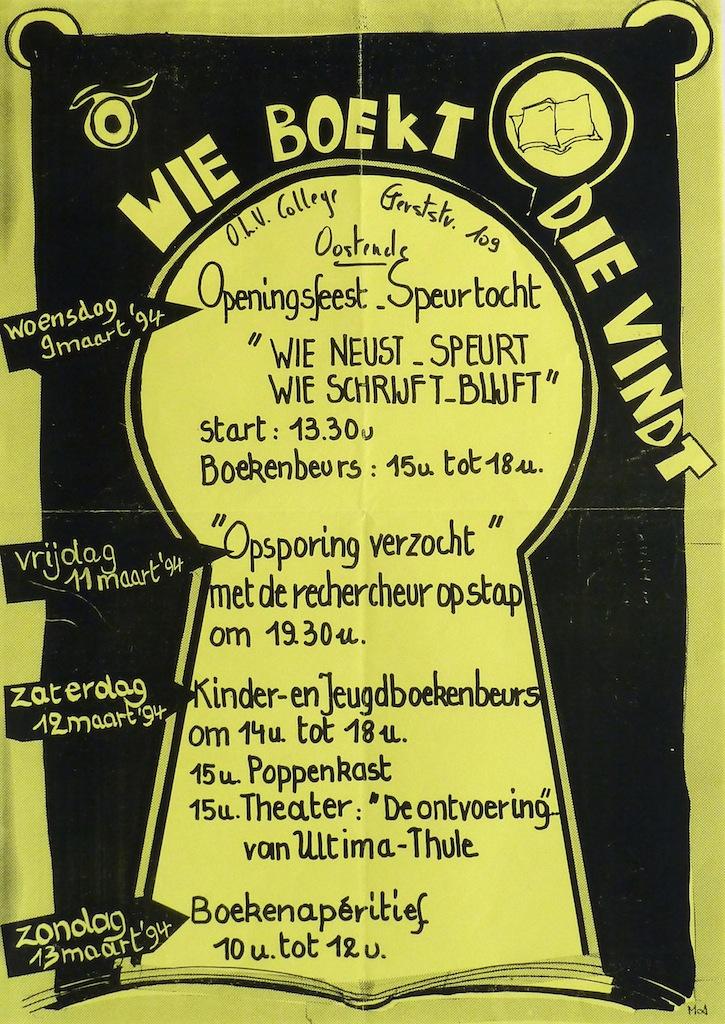 WIE BOEKT
DIE VINDT
O.L.V. College Gerststr. 109
Oostende
woensdag
9 maart '94
Openingsfeest - Speurtocht
"WIE NEUST - SPEURT
WIE SCHRIJFT - BLIJFT"
start: 13.30u
Boekenbeurs: 15u tot 18u.
vrijdag
11 maart '94
"Opsporing verzocht"
met de rechercheur op stap
om 19.30u.
zaterdag
12 maart '94
Kinder- en Jeugdboekenbeurs
om 14u tot 18u.
15u. Poppenkast
15u. Theater: "De ontvoering"
van Ultima-Thule
zondag
13 maart '94
Boekenapéritief
10u. tot 12u.